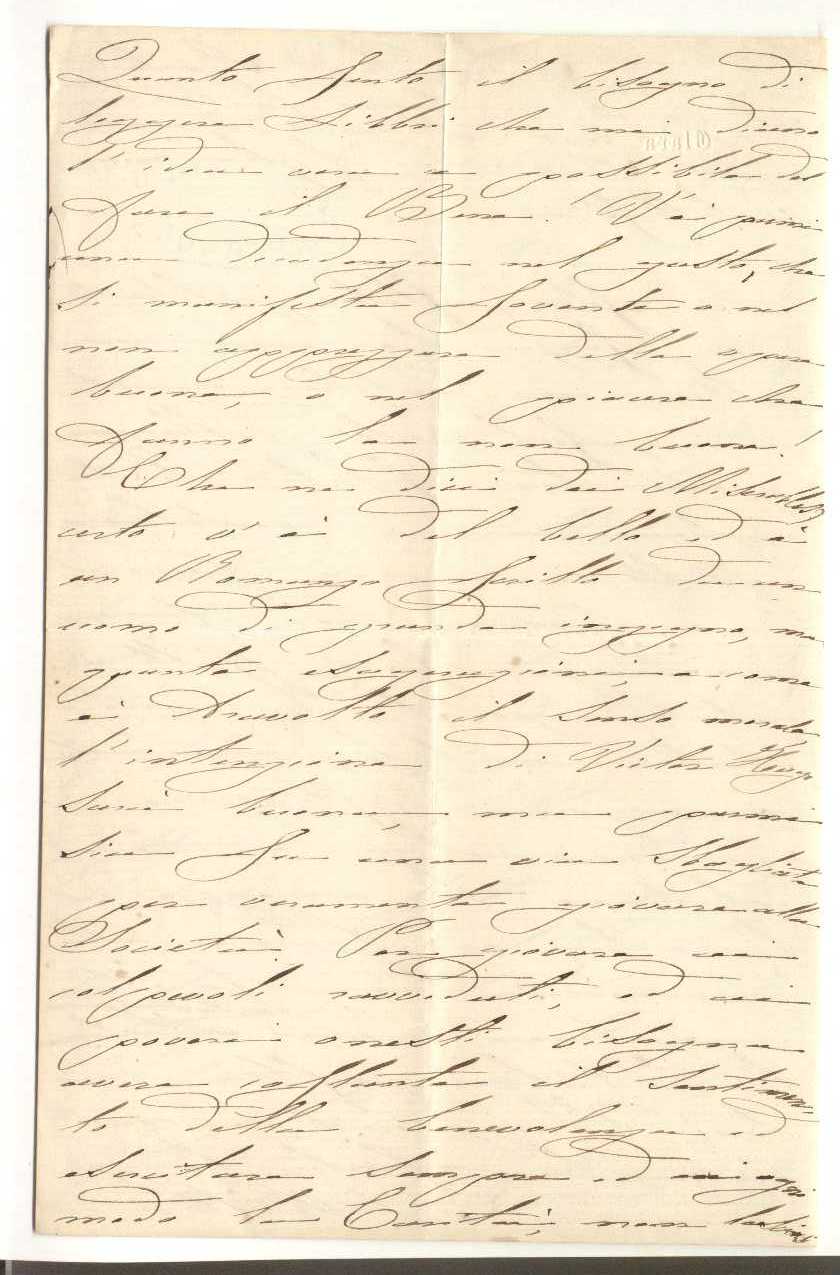 Quanto sento il bisogno di
leggere Libbri che mi diano
l'idea vera e possibile del
fare il Bene! V'è parmi
una decadenza nel gusto, che
si manifesta sovente o nel
non apprezzare delle opere
buone, o nel piacere che
fanno le non buone!
Che ne dici dei Miserables
certo v'è del bello ed è
un Romanzo scritto da un
uomo di grande ingegno, ma
quante esagerazioni, e come
è travolto il senso morale
l'intenzione di Victor Hugo
sarà buona, ma parmi
sia su una via sbagliata
per veramente giovare alla
Società. Per giovare ai
colpevoli ravveduti, ed ai
poveri onesti bisogna
avere costante il sentimen-
to della benevolenza ed
esercitare sempre ed in ogni
modo la Carità, non